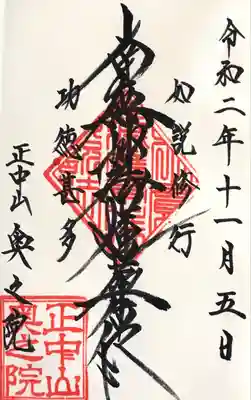 令和二年十一月五日
如説修行
南無妙法蓮華経
功徳甚多
正中山 奥之院
正中山
奥之院